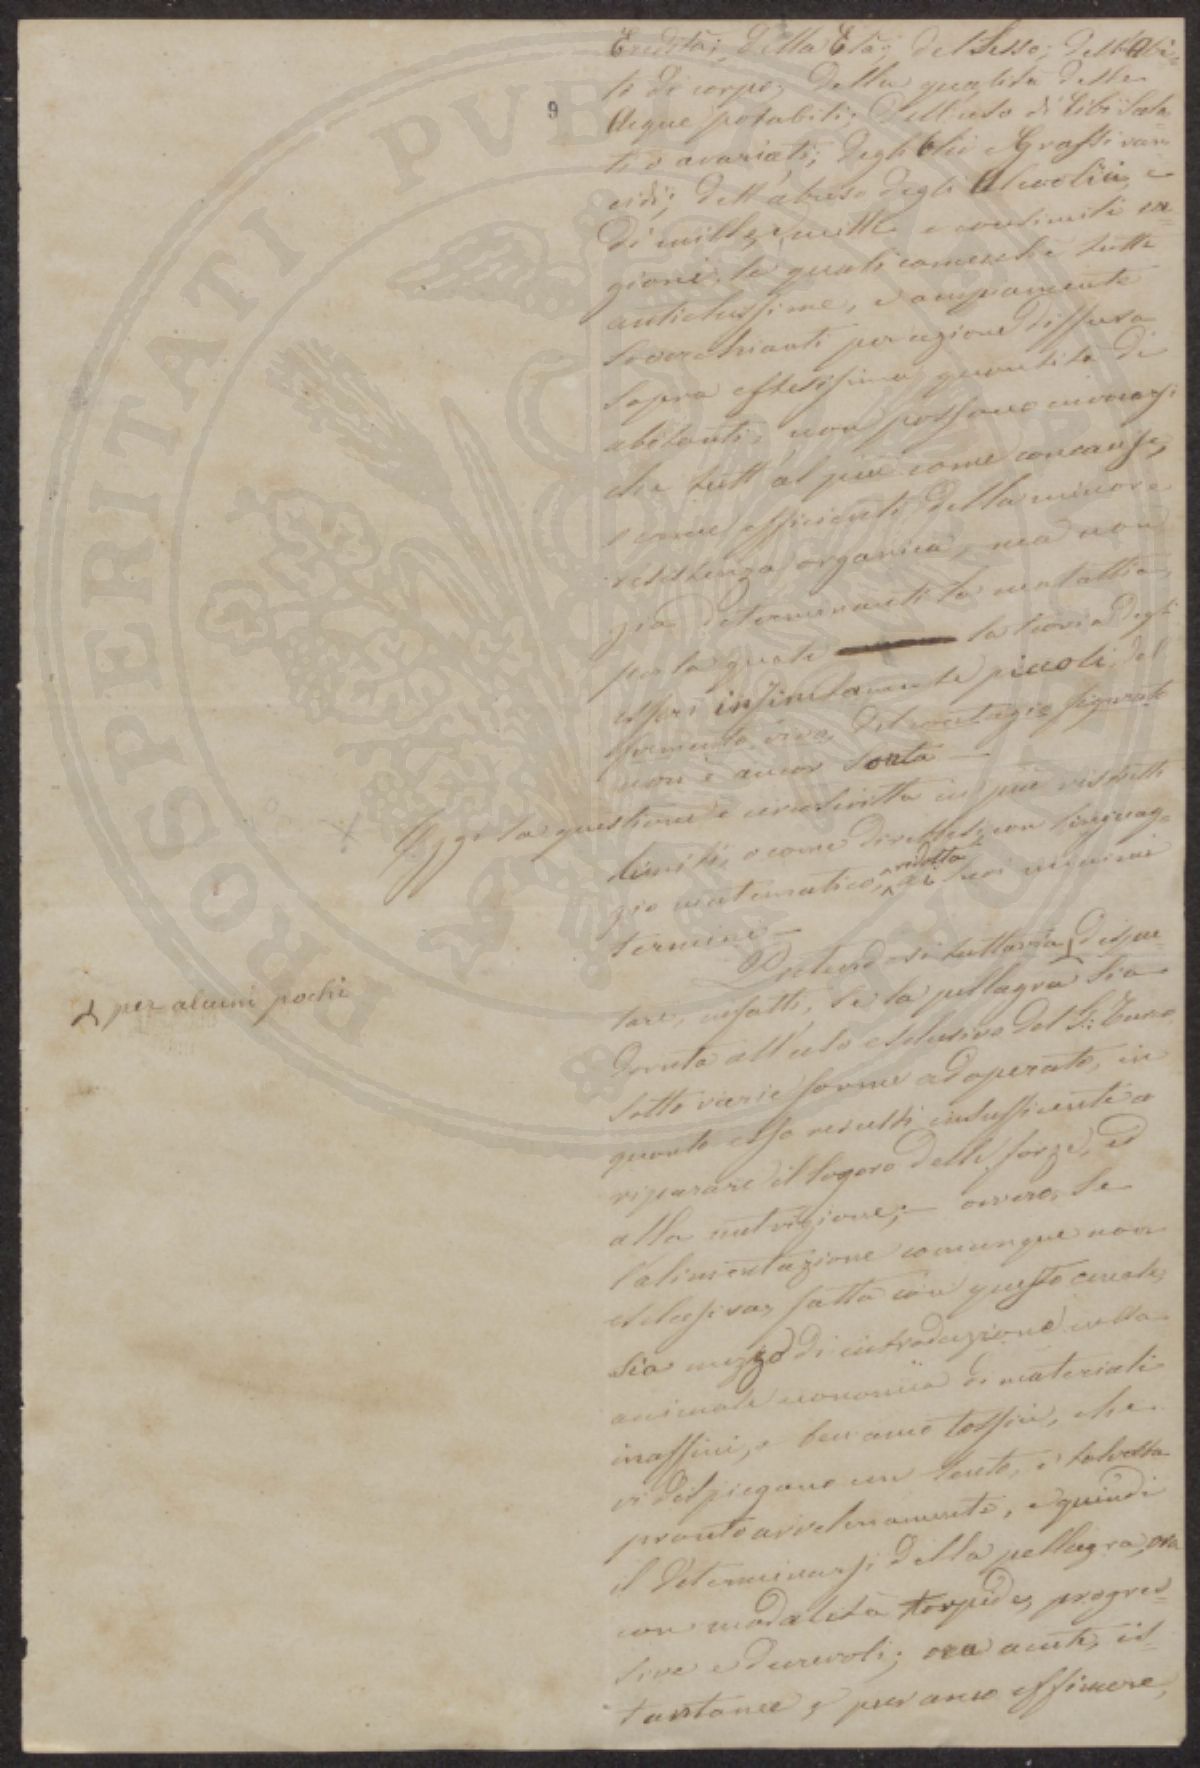 9
Eredità; della Età; del Sesso; dell'Abi-
to di corpo; della qualità delle
Acque potabili; dell'uso di Cibi Sala-
ti o avariati; degli Olii e Grassi ran-
cidi; dell'abuso degli Alcoolici, e
di mille, e mille e consimili ca-
gioni, le quali comechè tutte
antichissime, e ampiamente
soverchianti per azione diffusa
sopra estesissima quantità di
abitanti, non possono invocarsi
che tutt'al più come concause,
e come efficienti della minore
resistenza organica, ma non
già determinanti la malattia,
per la quale la teoria degli
esseri infinitamente piccoli, del
fermento vivo, del contagio figurato
non è ancor sorta —
Oggi la questione è circoscritta in più ristretti
limiti, o come direbbesi con linguag-
gio matematico, ridotta ai suoi minimi
termini —
Potendosi tuttavia, dispu-
tare, infatti, se la pellagra sia
⅄ per alcuni pochi
dovuta all'uso esclusivo del G: Turco
sotto varie forme adoperato, in
quanto esso risulti insufficiente a
riparare il logoro delle forze, ed
alla nutrizione; — ovvero, se
l'alimentazione comunque non
esclusiva, fatta con questo cereale,
sia mezzo di introduzione nella
animale economia di materiali
inaffini, e ben anco tossici, che
vi dispiegano un lento, e talvolta
pronto avvelenamento, e quindi
il determinarsi della pellagra, ora
con modalità torpide, progres-
sive e durevoli; ora acute, is-
tantanee, e pur anco effimere,